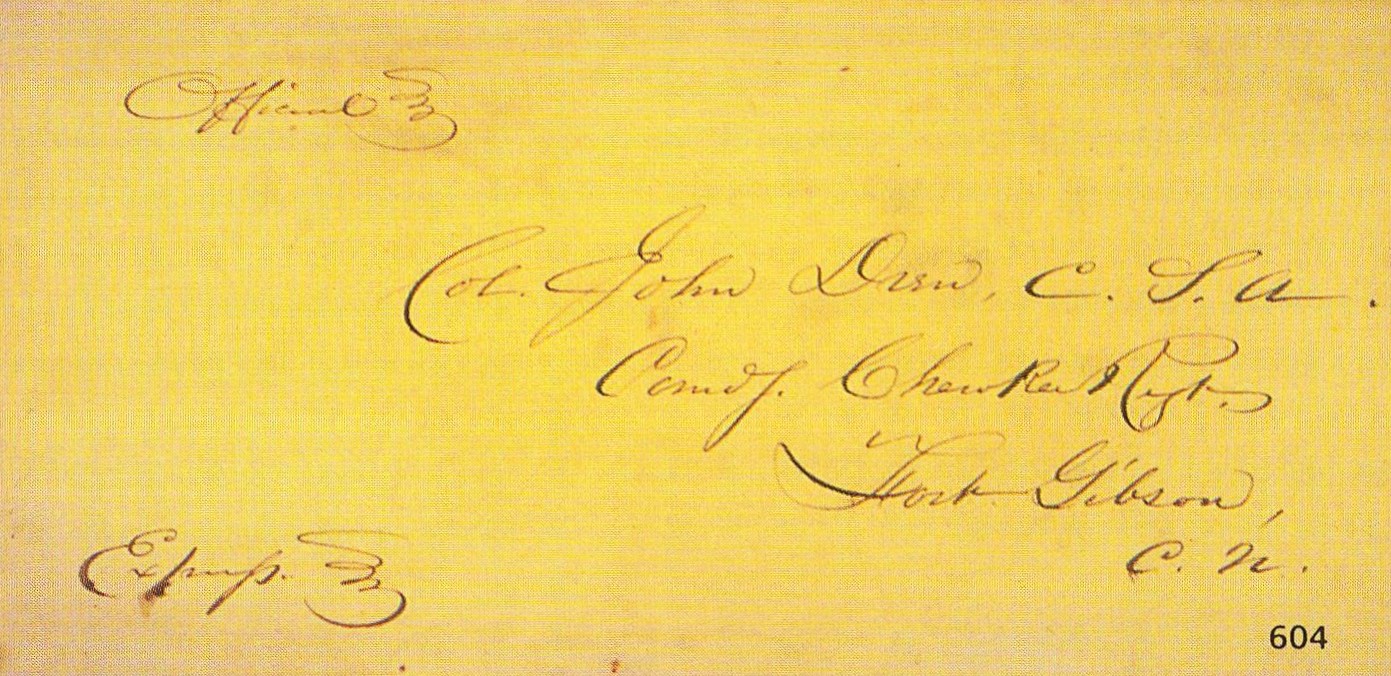 Official
Col. John Drew, C. S. A.
Comdg. Cherokee Regt.
Fort Gibson,
C. N.
Express.
604